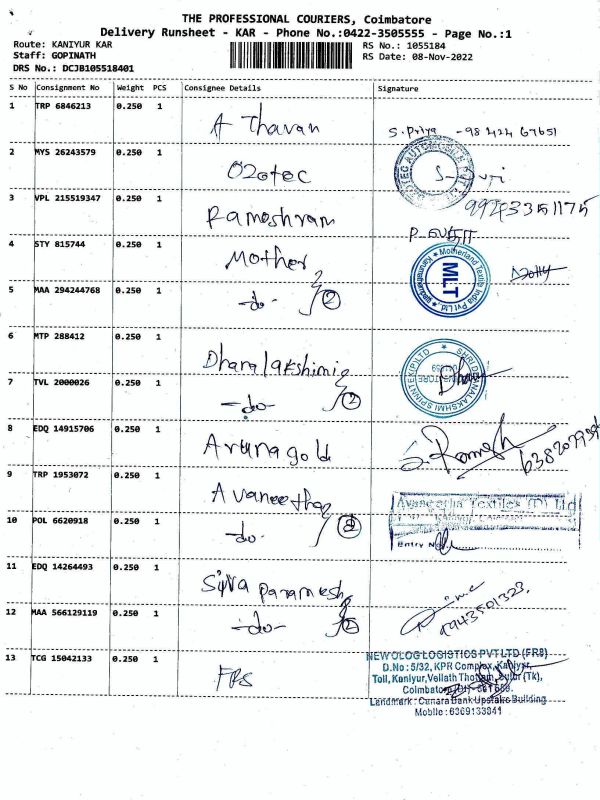 THE PROFESSIONAL COURIERS, Coimbatore
Delivery Runsheet - KAR - Phone No.:0422-3505555 - Page No.:1
Route: KANIYUR KAR
Staff: GOPINATH
DRS No.: DCJB105518401
RS No.: 1055184
RS Date: 08-Nov-2022
S No Consignment No Weight PCS Consignee Details Signature
1 TRP 6846213 0.250 1 A Thavan S. Priya - 98424 67651
2 MYS 26243579 0.250 1 Ozotec
3 VPL 215519347 0.250 1 Rameshram 9943351175
4 STY 815744 0.250 1 Mother
Motherland Textile India Pvt Ltd
MLT
5 MAA 294244768 0.250 1 -do- 2
6 MTP 288412 0.250 1 Dhanalakshimi
7 TVL 2000026 0.250 1 -do- 2
8 EDQ 14915706 0.250 1 Arunagold S. Ramesh
9 TRP 1953072 0.250 1 Avaneetha
Avaneetha Textiles (P) Ltd
10 POL 6620918 0.250 1 -do- 2
Entry No
11 EDQ 14264493 0.250 1 Siva Paramesh
12 MAA 566129119 0.250 1 -do- 2 9943501323
13 TCG 15042133 0.250 1 FRS
NEWOLOG LOGISTICS PVT LTD (FR8)
D.No : 5/32, KPR Complex, Kaniyur,
Toll, Kaniyur, Vellath Thottam, Sulur (Tk),
Coimbatore (Dt)
Landmark : Canara Bank Upstairs Building
Mobile : 6369133841